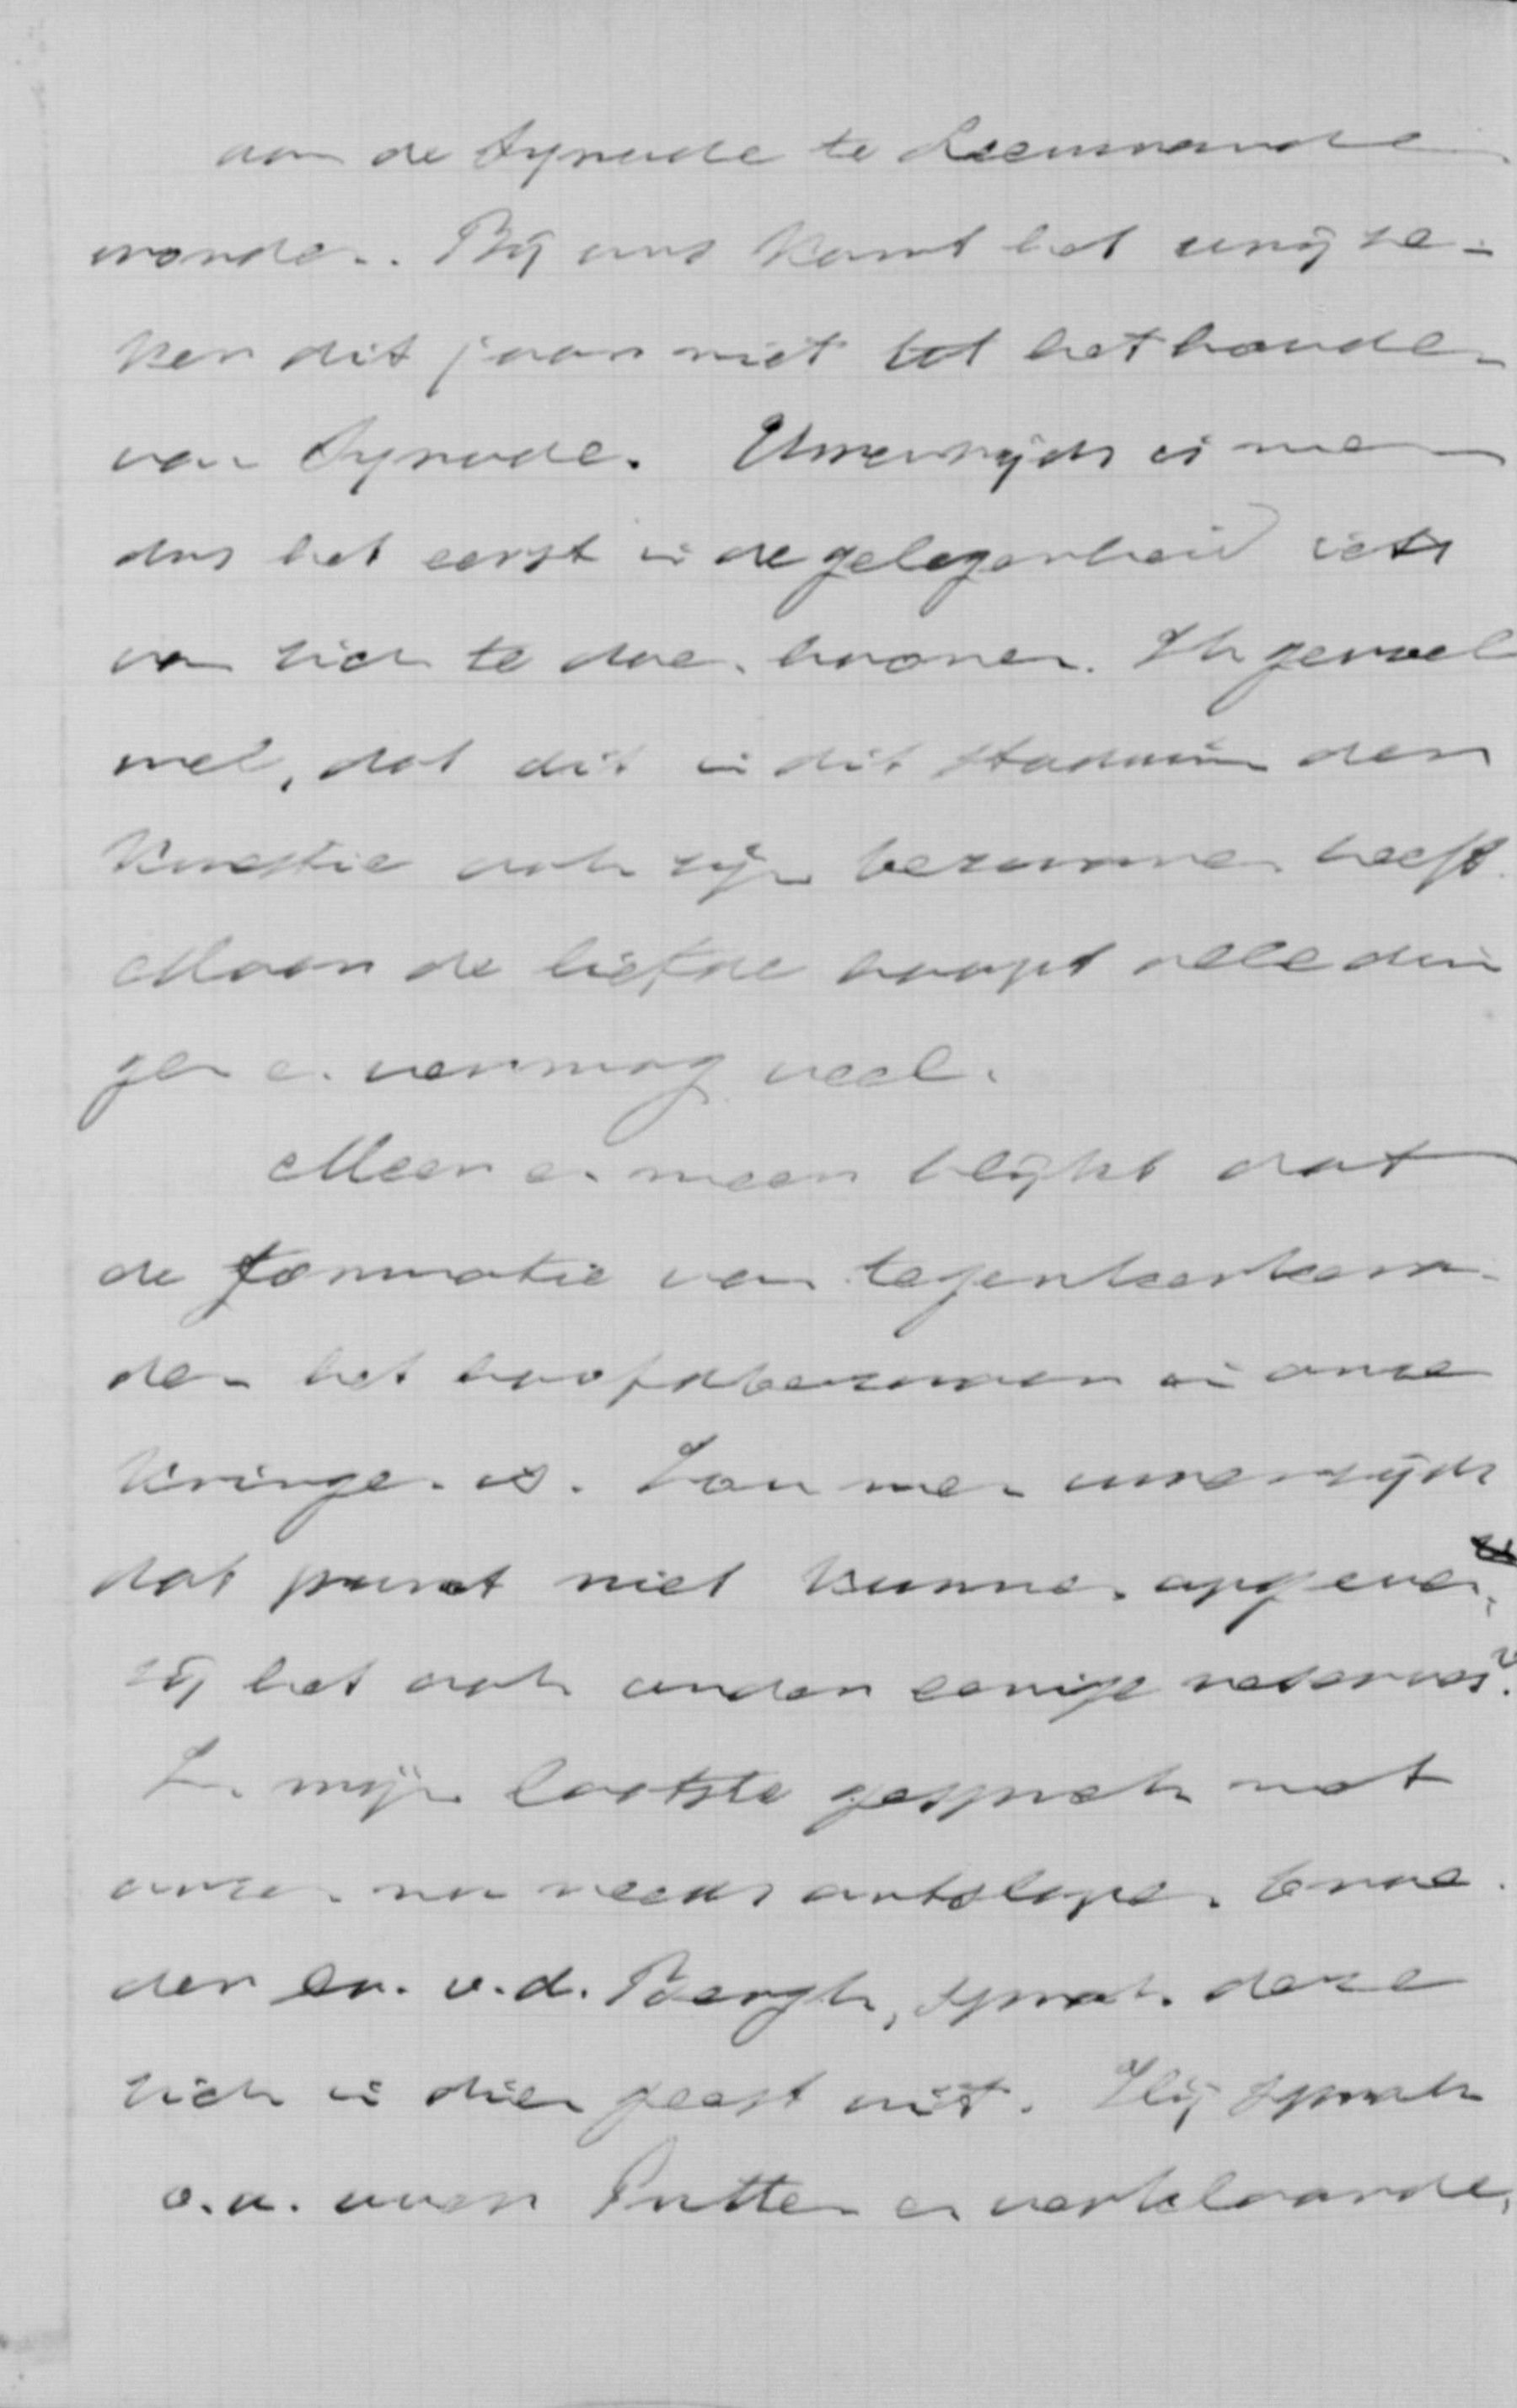 aan de Synode te Leeuwarden
worden. Bij ons komt het vrij ze-
ker dit jaar niet tot het houden
van Synode. Uwerzijds is men
dus het eerst in de gelegenheid iets
van zich te doen hooren. Ik gevoel
wel, dat dit in dit stadium der
kwestie ook zijn bezwaren heeft.
Maar de liefde hoopt alle din
gen en vermag veel.
Meer en meer blijkt dat
de formatie van tegenkerkera-
den het hoofdbezwaar in onze
kringen is. Zou men uwerzijds
dat punt niet kunnen opgeven,
zij het ook onder eenige reserves?
In mijn laatste gesprek met
onzen nu reeds ontslapen broe
der en. v.d. Bergh, sprak deze
zich in dien geest uit. Hij sprak
o.a. over Putten en verklaarde,